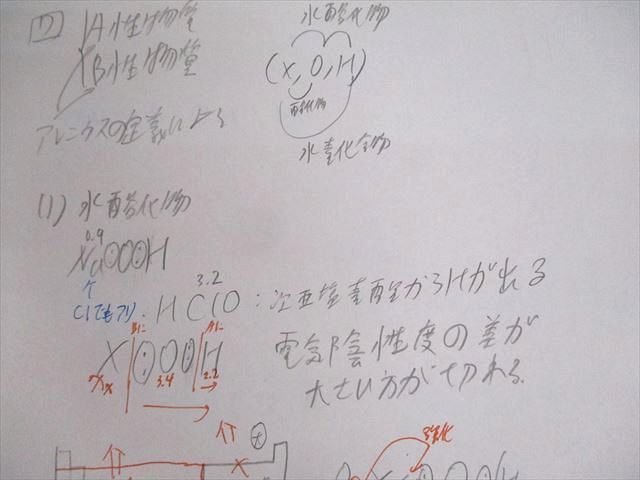 A性物質
B性物質
アレニウスの定義による
水酸化物
(X, O, H)
酸化物
水素化合物
(1) 水酸化物
0.9
NaOH
Clでもアリ.
3.2
HClO : 次亜塩素酸からHが出る
X O H
3.4 2.2
電気陰性度の差が
大きい方が切れる.
強化